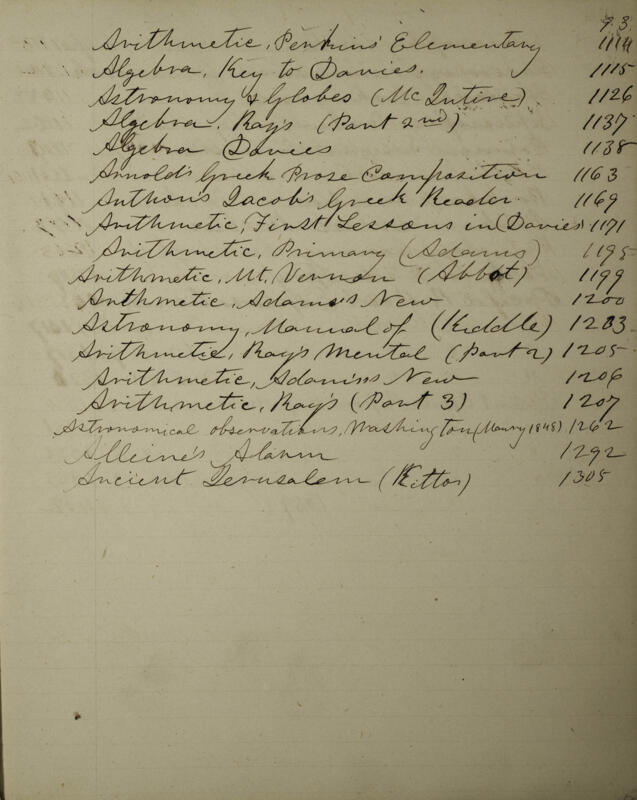 93
Arithmetic, Perkins' Elementary 1114
Algebra, Key to Davies. 1115
Astronomy & Globes (McIntire) 1126
Algebra. Ray's (Part 2nd) 1137
Algebra Davies 1138
Arnold's Greek Prose Composition 1163
Anthon's Jacob's Greek Reader. 1169
Arithmetic, First Lessons in (Davies) 1171
Arithmetic, Primary (Adams) 1195
Arithmetic, Mt. Vernon (Abbot) 1199
Arithmetic, Adams's New 1200
Astronomy, Manual of (Kiddle) 1203
Arithmetic, Ray's Mental (Part 2) 1205
Arithmetic, Adams's New 1206
Arithmetic, Ray's (Part 3) 1207
Astronomical observations, Washington (Maury 1848) 1262
Alleine's Alarm 1292
Ancient Jerusalem (Kitto) 1305